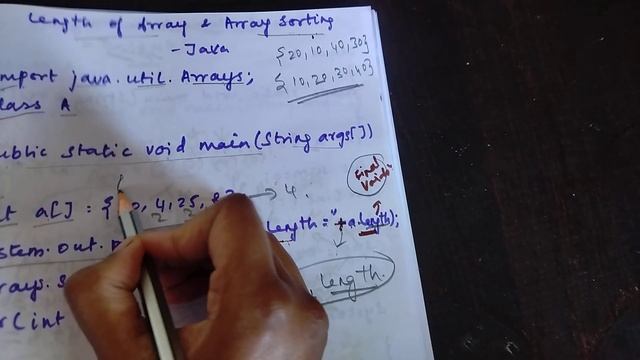 Length of Array & Array Sorting
- Java
{20, 10, 40, 30}
{10, 20, 30, 40}
mport java.util.Arrays;
lass A
ublic static void main(String args[])
Final
Variable
t a[] : { 0, 4, 25, 8} → 4.
2 2
stem.out.p
Length = " + a.length);
rays.s
length.
r(int